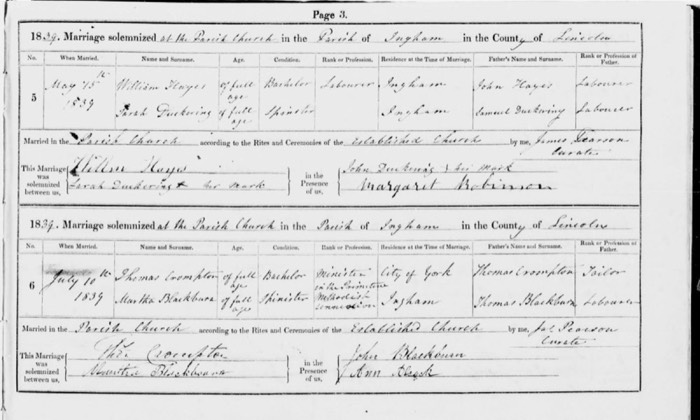 Page 3.
1839. Marriage solemnized at the Parish Church in the Parish of Ingham in the County of Lincoln
No. When Married. Name and Surname. Age. Condition. Rank or Profession. Residence at the Time of Marriage. Father's Name and Surname. Rank or Profession of Father.
5 May 15th 1839 William Hayes of full age Bachelor Labourer Ingham John Hayes Labourer
Sarah Duckering of full age Spinster Ingham Samuel Duckering Labourer
Married in the Parish Church according to the Rites and Ceremonies of the Established Church by me, James Pearson Curate
This Marriage was solemnized between us, William Hayes
Sarah Duckering + her mark
in the Presence of us, John Duckering his mark
Margaret Robinson
1839. Marriage solemnized at the Parish Church in the Parish of Ingham in the County of Lincoln
No. When Married. Name and Surname. Age. Condition. Rank or Profession. Residence at the Time of Marriage. Father's Name and Surname. Rank or Profession of Father.
6 July 10th 1839 Thomas Crompton of full age Bachelor Minister in the Primitive Methodist Connexion City of York Thomas Crompton Tailor
Martha Blackburn of full age Spinster Ingham Thomas Blackburn Labourer
Married in the Parish Church according to the Rites and Ceremonies of the Established Church by me, Jas Pearson Curate
This Marriage was solemnized between us, Crompton
Blackburn
in the Presence of us, John Blackburn
Ann